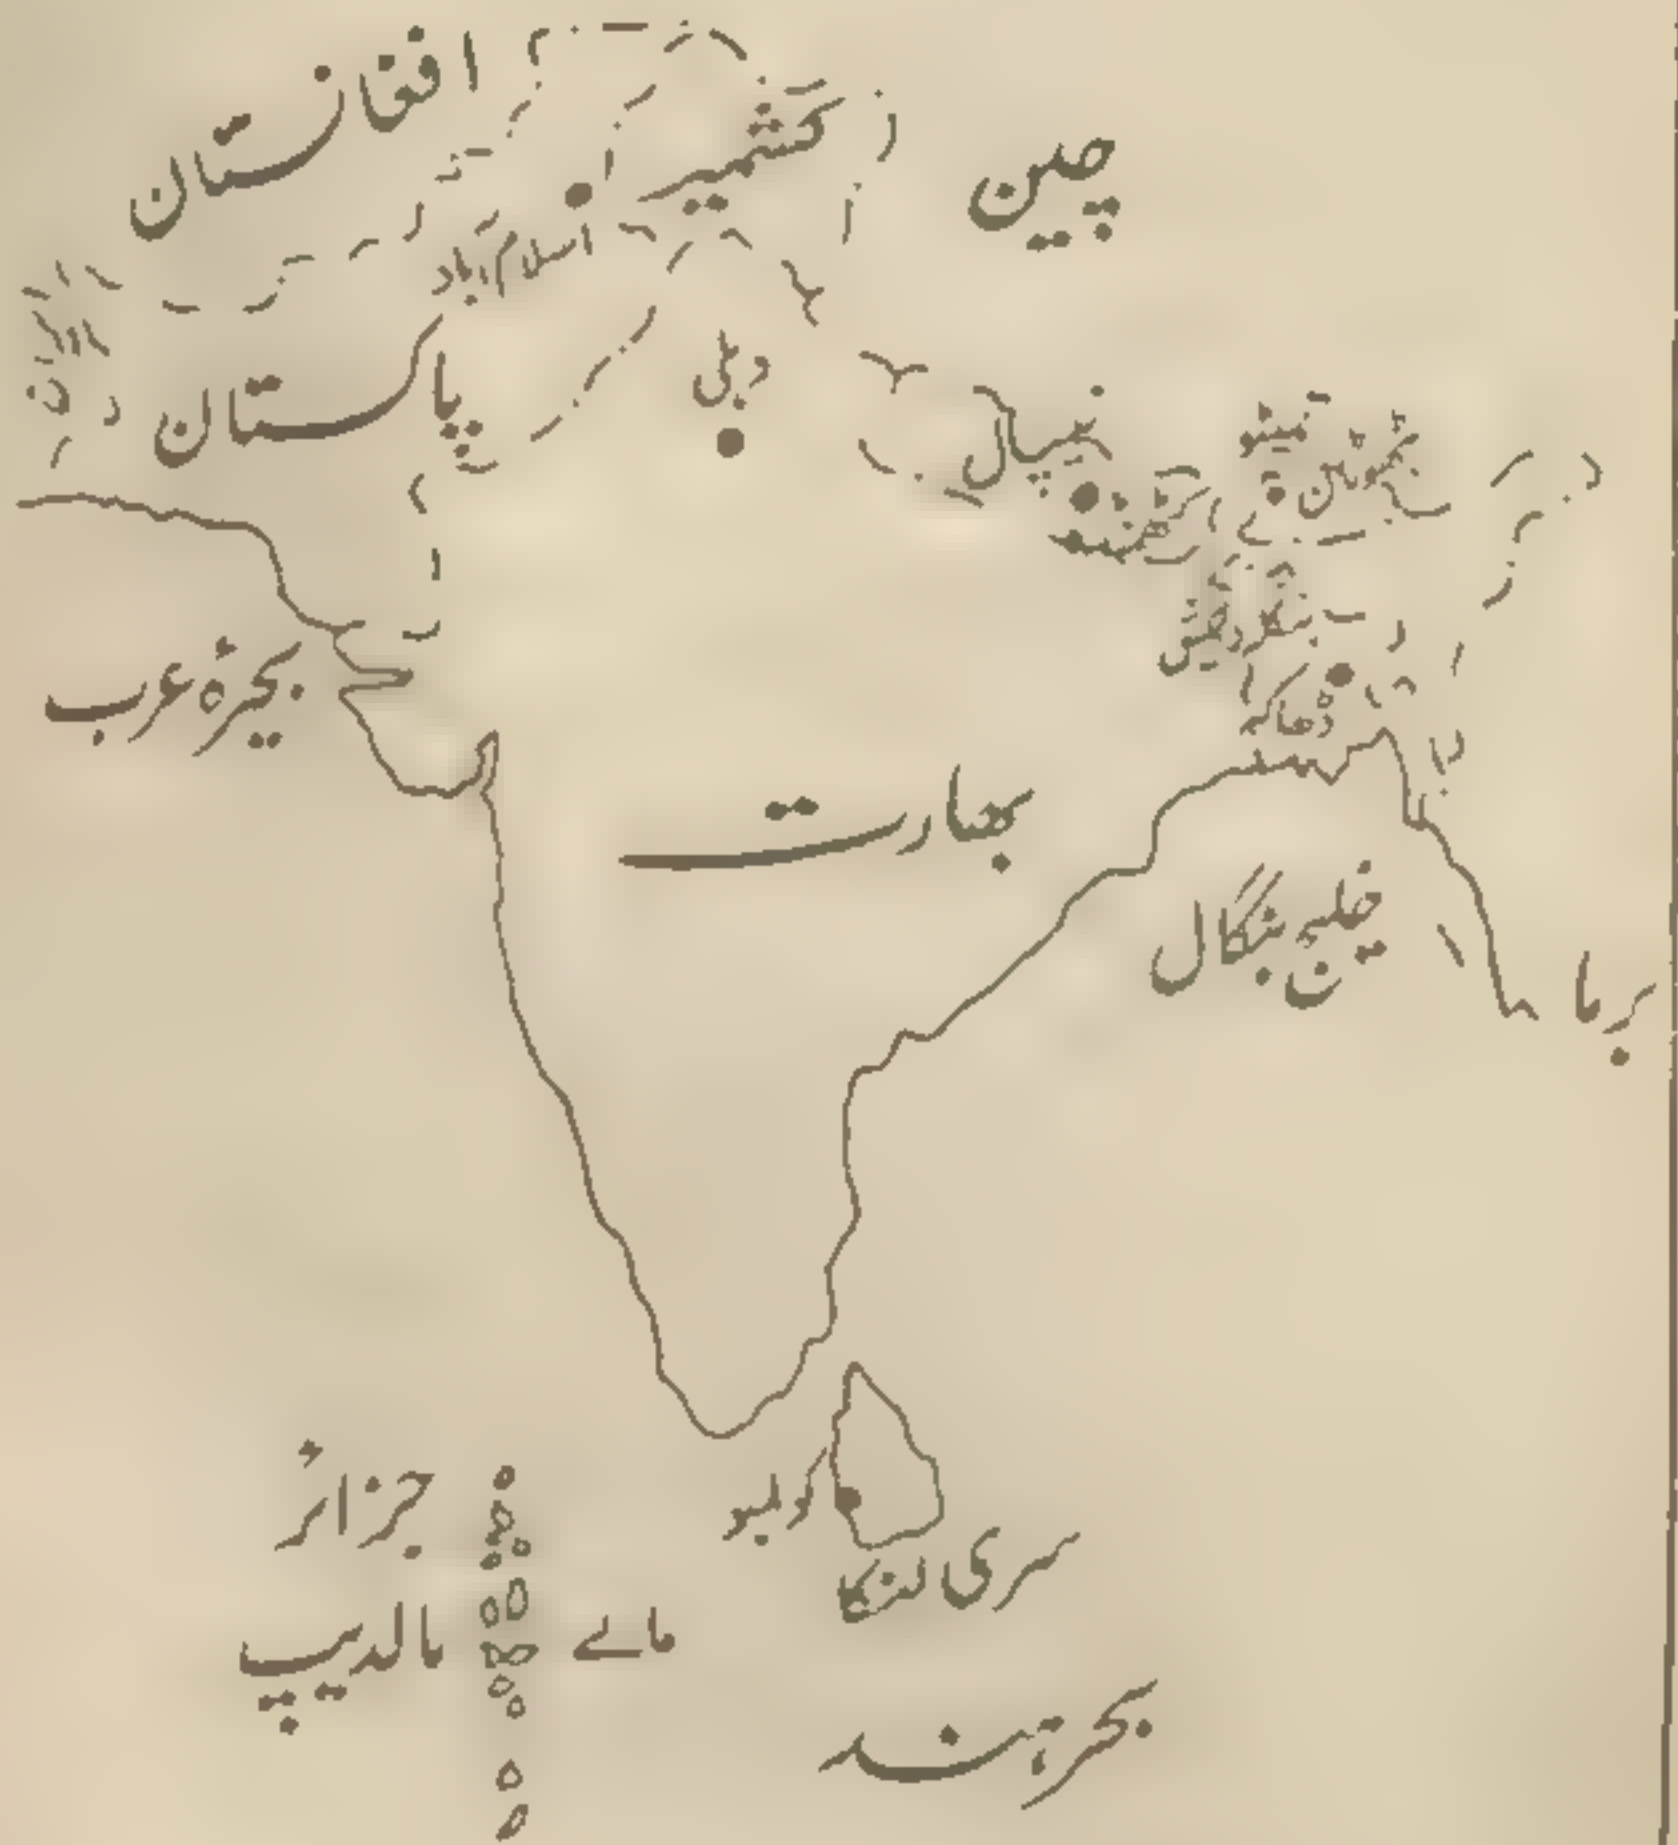 افغانستان
چین
کشمیر
اسلام آباد
پاکستان
دہلی
نیپال
کھٹمنڈو
تھمپو
بھوٹان
بنگلہ دیش
ڈھاکہ
بحیرۂ عرب
بھارت
خلیج بنگال
برما
کولمبو
سری لنکا
جزائر
مالدیپ
مالے
بحر ہند